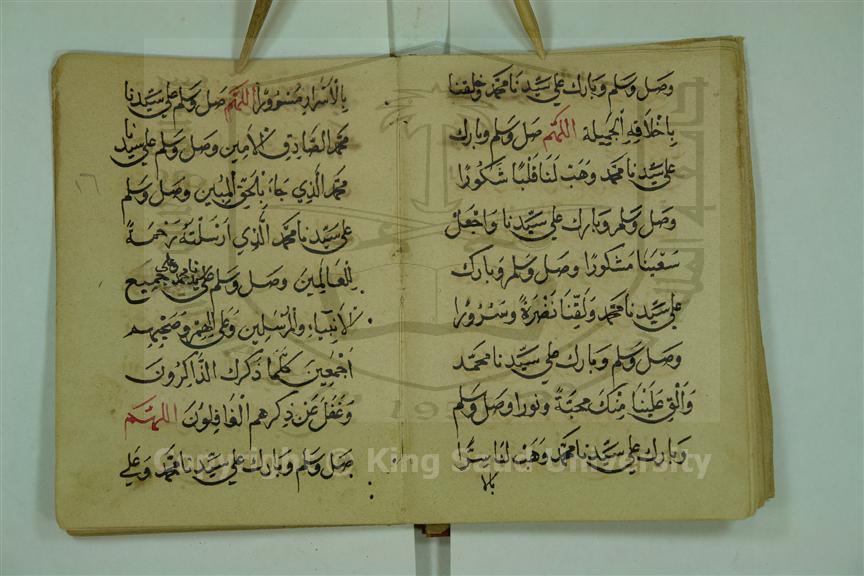 وصل وسلم وبارك علي سيدنا محمد خلقنا
باخلاقه الجميلة اللهم صل وسلم وبارك
علي سيدنا محمد وهب لنا قلبا شكورا
وصل وسلم وبارك علي سيدنا واجعل
سعينا مشكورا وصل وسلم وبارك
علي سيدنا محمد ولقنا نضرة وسرورا
وصل وسلم وبارك علي سيدنا محمد
والق علينا منك محبة ونورا وصل وسلم
وبارك علي سيدنا محمد وهب لنا سرا
بالا
بالاسرار مسرورا اللهم صل وسلم علي سيدنا
محمد الصادق الامين وصل وسلم علي سيدنا
محمد الذي جاء بالحق المبين وصل وسلم
علي سيدنا محمد الذي ارسلته رحمة
للعالمين وصل وسلم علي سيدنا محمد وعلي جميع
الانبياء والمرسلين وعلي الهم وصحبهم
اجمعين كلما ذكرك الذاكرون
وغفل عن ذكرهم الغافلون اللهم
صل وسلم وبارك علي سيدنا محمد وعلي
١٦
Copyright © King Saud University